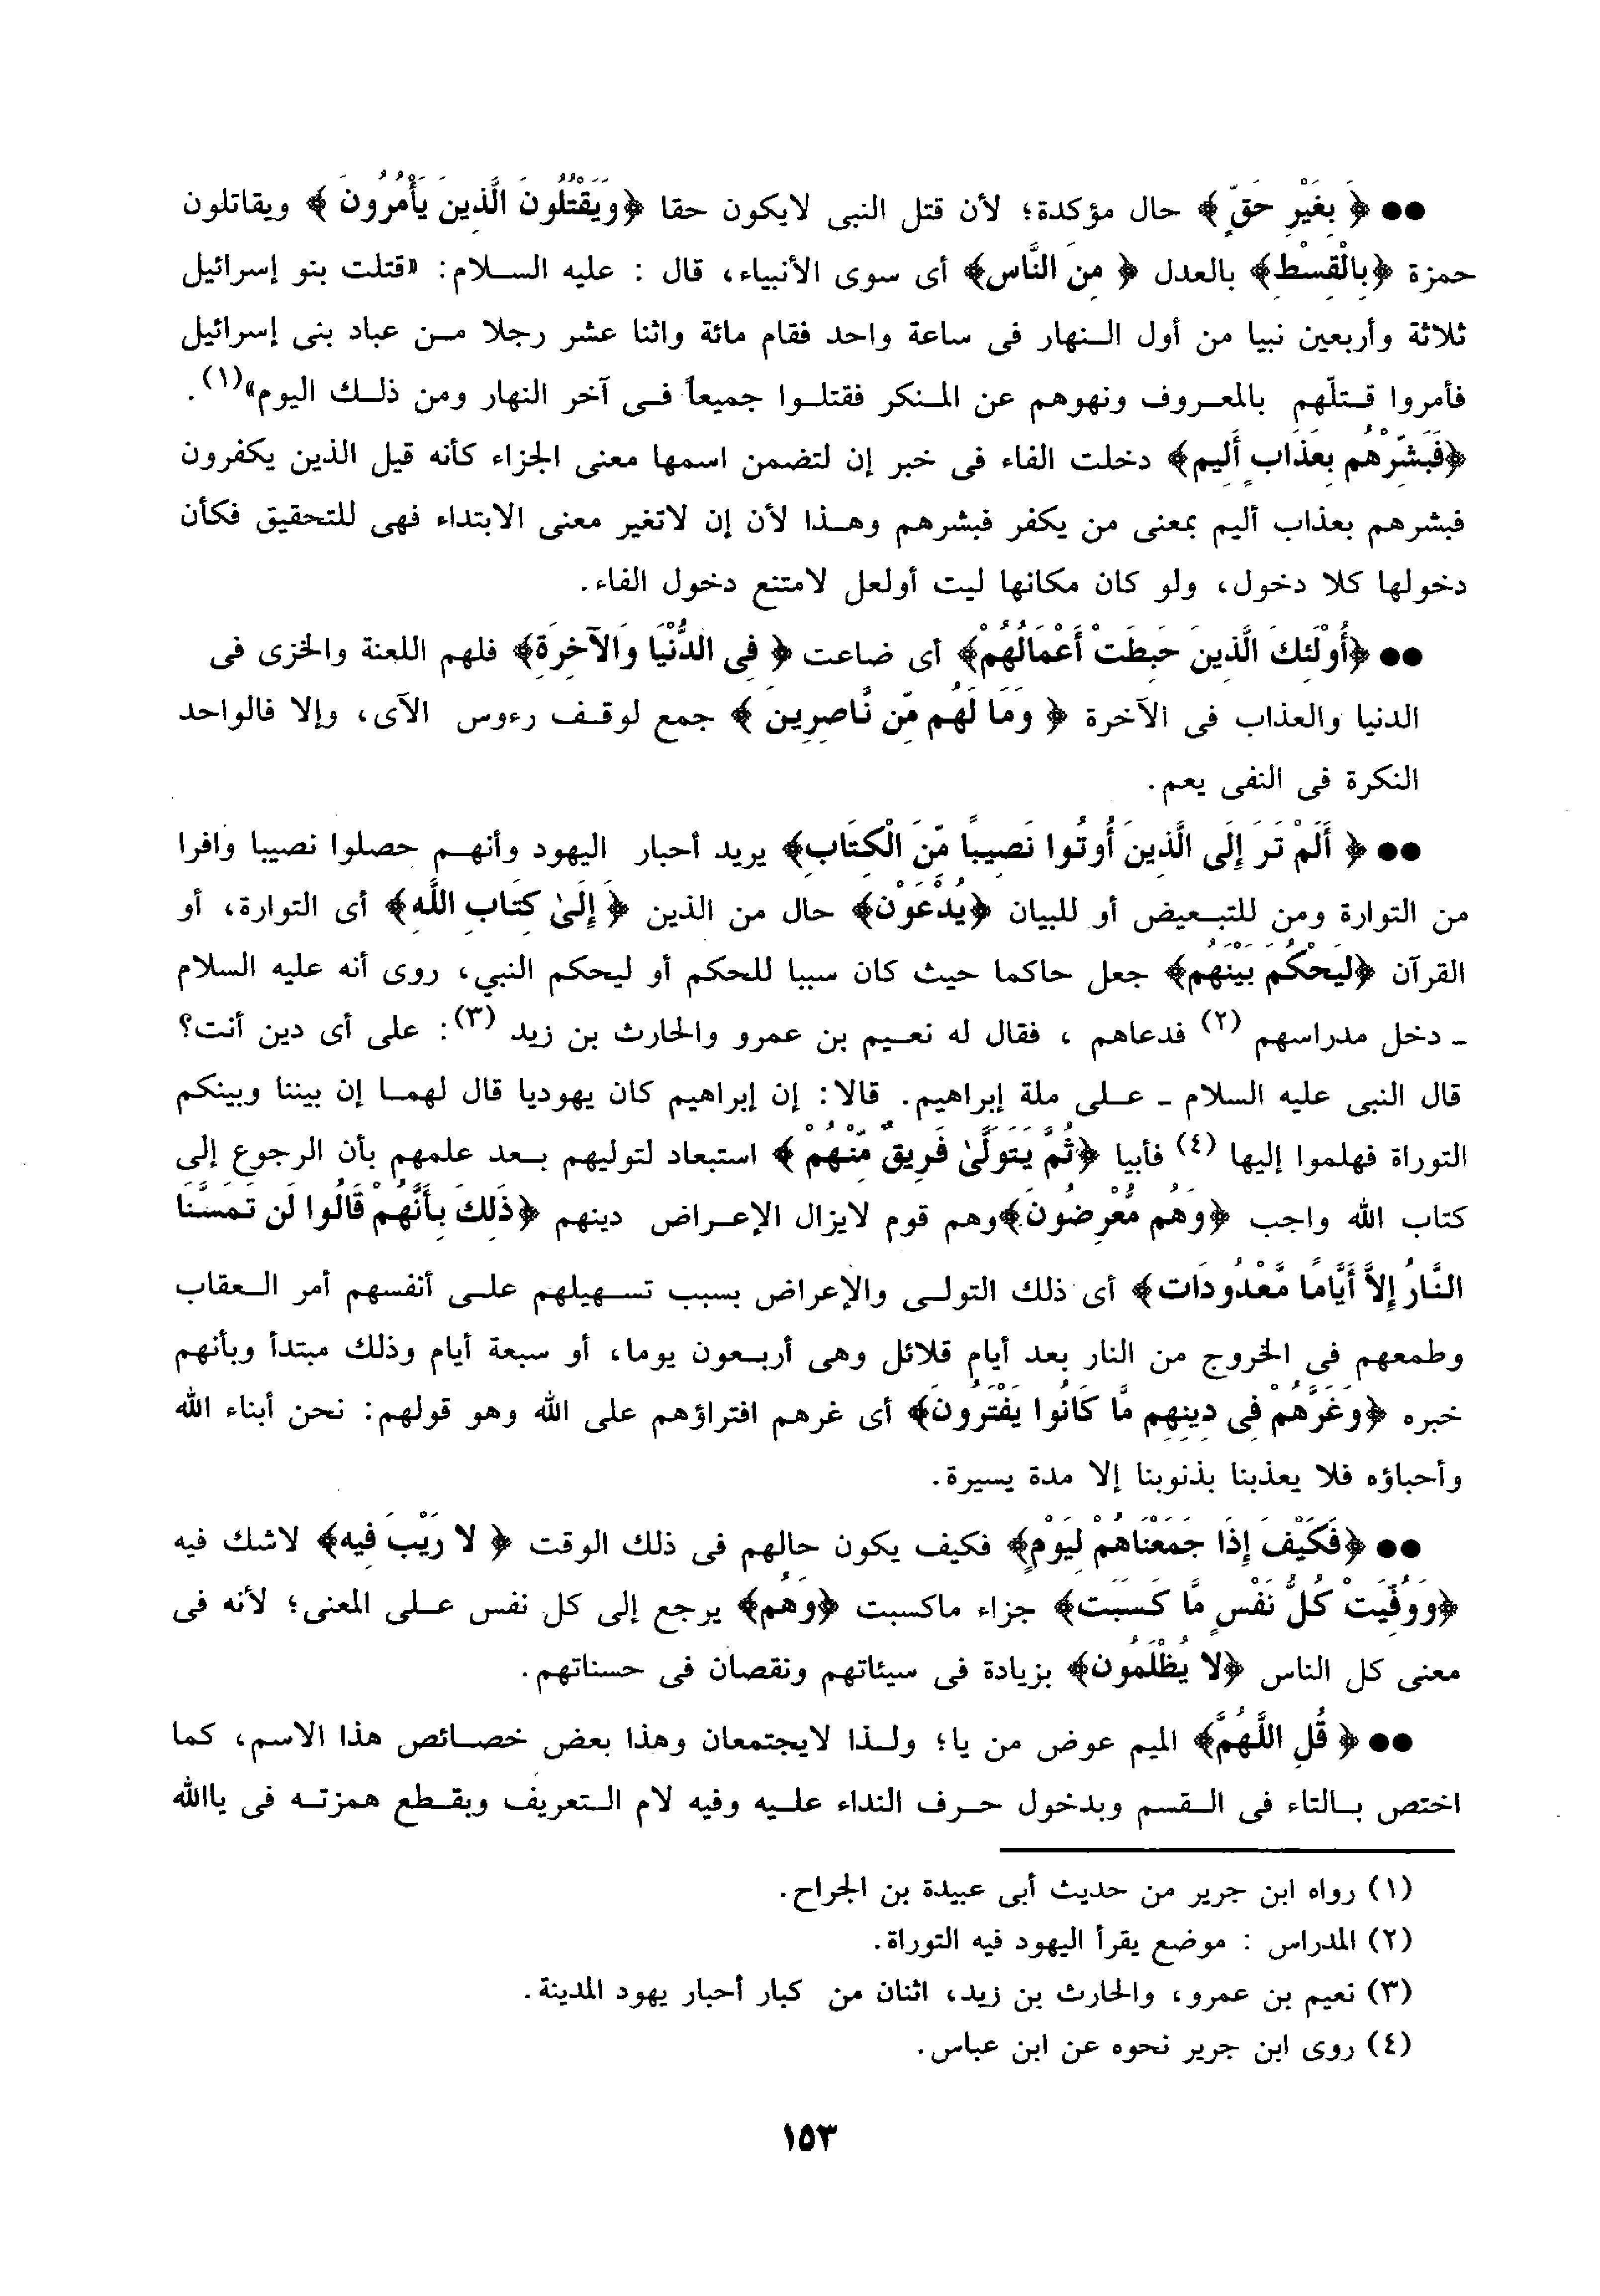 ●● ﴿ بِغَيْرِ حَقٍّ ﴾ حال مؤكدة؛ لأن قتل النبى لايكون حقا ﴿وَيَقْتُلُونَ الَّذِينَ يَأْمُرُونَ ﴾ ويقاتلون
حمزة ﴿بِالْقِسْطِ﴾ بالعدل ﴿ مِنَ النَّاسِ﴾ أى سوى الأنبياء، قال : عليه السلام: «قتلت بنو إسرائيل
ثلاثة وأربعين نبيا من أول النهار فى ساعة واحد فقام مائة واثنا عشر رجلا من عباد بنى إسرائيل
فأمروا قتلّهم بالمعروف ونهوهم عن المنكر فقتلوا جميعاً فى آخر النهار ومن ذلك اليوم»(١).
﴿فَبَشِّرْهُم بِعَذَابٍ أَلِيمٍ﴾ دخلت الفاء فى خبر إن لتضمن اسمها معنى الجزاء كأنه قيل الذين يكفرون
فبشرهم بعذاب أليم بمعنى من يكفر فبشرهم وهذا لأن إن لاتغير معنى الابتداء فهى للتحقيق فكأن
دخولها كلا دخول، ولو كان مكانها ليت أولعل لامتنع دخول الفاء.
●● ﴿أُوْلَئِكَ الَّذِينَ حَبِطَتْ أَعْمَالُهُمْ﴾ أى ضاعت ﴿ فِى الدُّنْيَا وَالآخِرَةِ﴾ فلهم اللعنة والخزى فى
الدنيا والعذاب فى الآخرة ﴿ وَمَا لَهُم مِّن نَّاصِرِينَ ﴾ جمع لوقف رءوس الآى، وإلا فالواحد
النكرة فى النفى يعم.
●● ﴿ أَلَمْ تَرَ إِلَى الَّذِينَ أُوتُوا نَصِيبًا مِّنَ الْكِتَابِ﴾ يريد أحبار اليهود وأنهم حصلوا نصيبا وافرا
من التوارة ومن للتبعيض أو للبيان ﴿يُدْعَوْنَ﴾ حال من الذين ﴿ إِلَىٰ كِتَابِ اللَّهِ﴾ أى التوارة، أو
القرآن ﴿لِيَحْكُمَ بَيْنَهُمْ﴾ جعل حاكما حيث كان سببا للحكم أو ليحكم النبي، روى أنه عليه السلام
ـ دخل مدراسهم (٢) فدعاهم ، فقال له نعيم بن عمرو والحارث بن زيد (٣): على أى دين أنت؟
قال النبى عليه السلام ـ على ملة إبراهيم. قالا: إن إبراهيم كان يهوديا قال لهما إن بيننا وبينكم
التوراة فهلموا إليها (٤) فأبيا ﴿ثُمَّ يَتَوَلَّىٰ فَرِيقٌ مِّنْهُمْ ﴾ استبعاد لتوليهم بعد علمهم بأن الرجوع إلى
كتاب الله واجب ﴿وَهُم مُّعْرِضُونَ﴾وهم قوم لايزال الإعراض دينهم ﴿ذَلِكَ بِأَنَّهُمْ قَالُوا لَن تَمَسَّنَا
النَّارُ إِلاَّ أَيَّامًا مَّعْدُودَات﴾ أى ذلك التولى والإعراض بسبب تسهيلهم على أنفسهم أمر العقاب
وطمعهم فى الخروج من النار بعد أيام قلائل وهى أربعون يوما، أو سبعة أيام وذلك مبتدأ وبأنهم
خبره ﴿وَغَرَّهُمْ فِى دِينِهِم مَّا كَانُوا يَفْتَرُونَ﴾ أى غرهم افتراؤهم على الله وهو قولهم: نحن أبناء الله
وأحباؤه فلا يعذبنا بذنوبنا إلا مدة يسيرة.
●● ﴿فَكَيْفَ إِذَا جَمَعْنَاهُمْ لِيَوْمٍ﴾ فكيف يكون حالهم فى ذلك الوقت ﴿ لا رَيْبَ فِيهِ﴾ لاشك فيه
﴿وَوُفِّيَتْ كُلُّ نَفْسٍ مَّا كَسَبَت﴾ جزاء ماكسبت ﴿وَهُم﴾ يرجع إلى كل نفس على المعنى؛ لأنه فى
معنى كل الناس ﴿لا يُظْلَمُون﴾ بزيادة فى سيئاتهم ونقصان فى حسناتهم.
●● ﴿ قُلِ اللَّهُمَّ﴾ الميم عوض من يا؛ ولذا لايجتمعان وهذا بعض خصائص هذا الاسم، كما
اختص بالتاء فى القسم وبدخول حرف النداء عليه وفيه لام التعريف وبقطع همزته فى ياالله
(١) رواه ابن جرير من حديث أبى عبيدة بن الجراح.
(٢) المدراس : موضع يقرأ اليهود فيه التوراة.
(٣) نعيم بن عمرو، والحارث بن زيد، اثنان من كبار أحبار يهود المدينة.
(٤) روى ابن جرير نحوه عن ابن عباس.
١٥٣